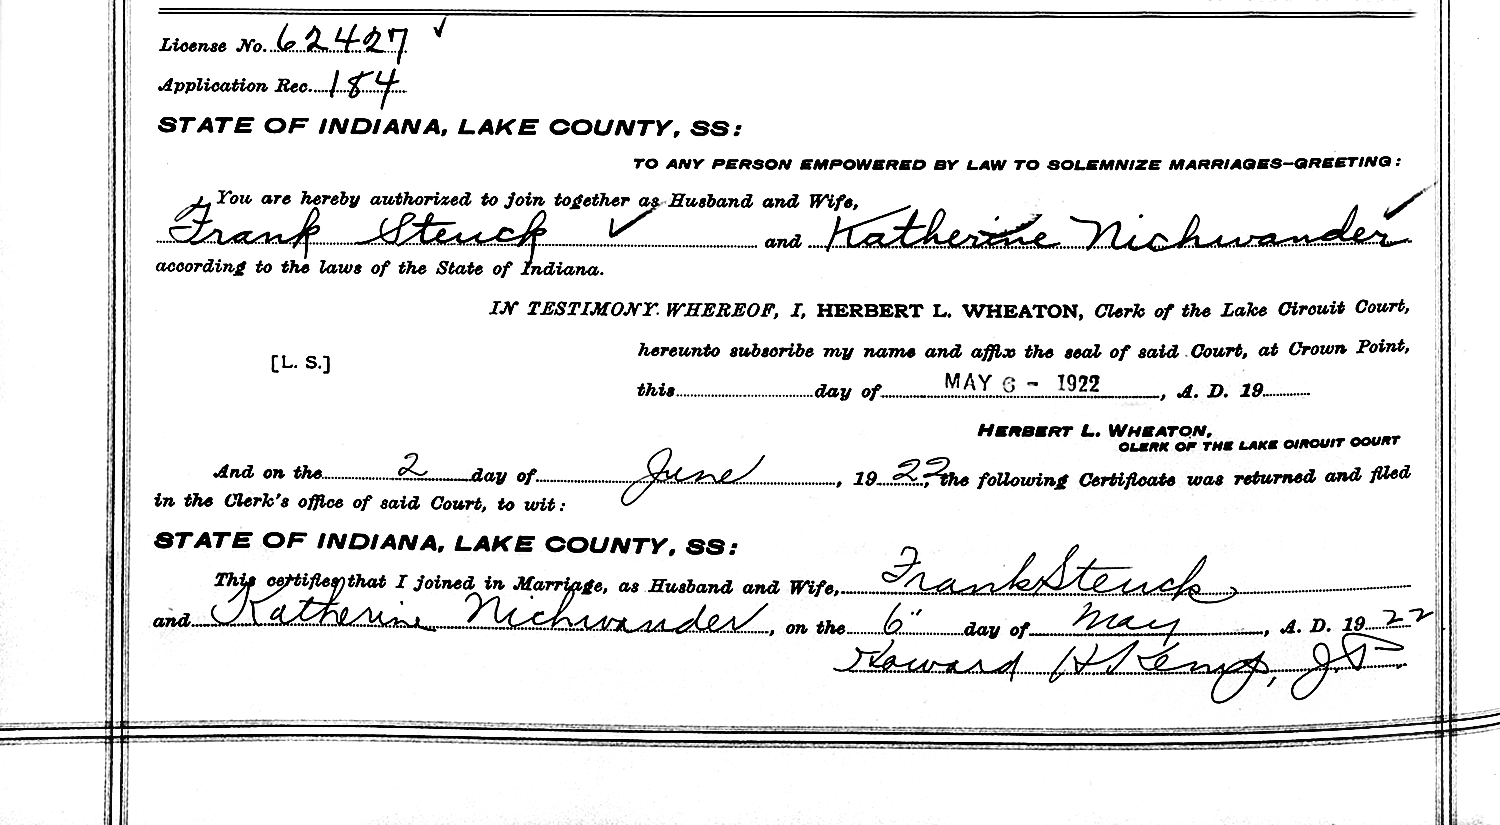 License No. 62427
Application Rec. 184
STATE OF INDIANA, LAKE COUNTY, SS:
TO ANY PERSON EMPOWERED BY LAW TO SOLEMNIZE MARRIAGES—GREETING:
You are hereby authorized to join together as Husband and Wife,
Frank Steuck and Katherine Nichwander
according to the laws of the State of Indiana.
IN TESTIMONY WHEREOF, I, HERBERT L. WHEATON, Clerk of the Lake Circuit Court,
hereunto subscribe my name and affix the seal of said Court, at Crown Point,
[L. S.]
this day of MAY 6 - 1922, A. D. 19
HERBERT L. WHEATON,
CLERK OF THE LAKE CIRCUIT COURT
And on the 2 day of June, 1922, the following Certificate was returned and filed
in the Clerk's office of said Court, to wit:
STATE OF INDIANA, LAKE COUNTY, SS:
This certifies that I joined in Marriage, as Husband and Wife, Frank Steuck
and Katherine Nichwander, on the 6" day of May, A. D. 1922
Howard H Kemp, J.P.